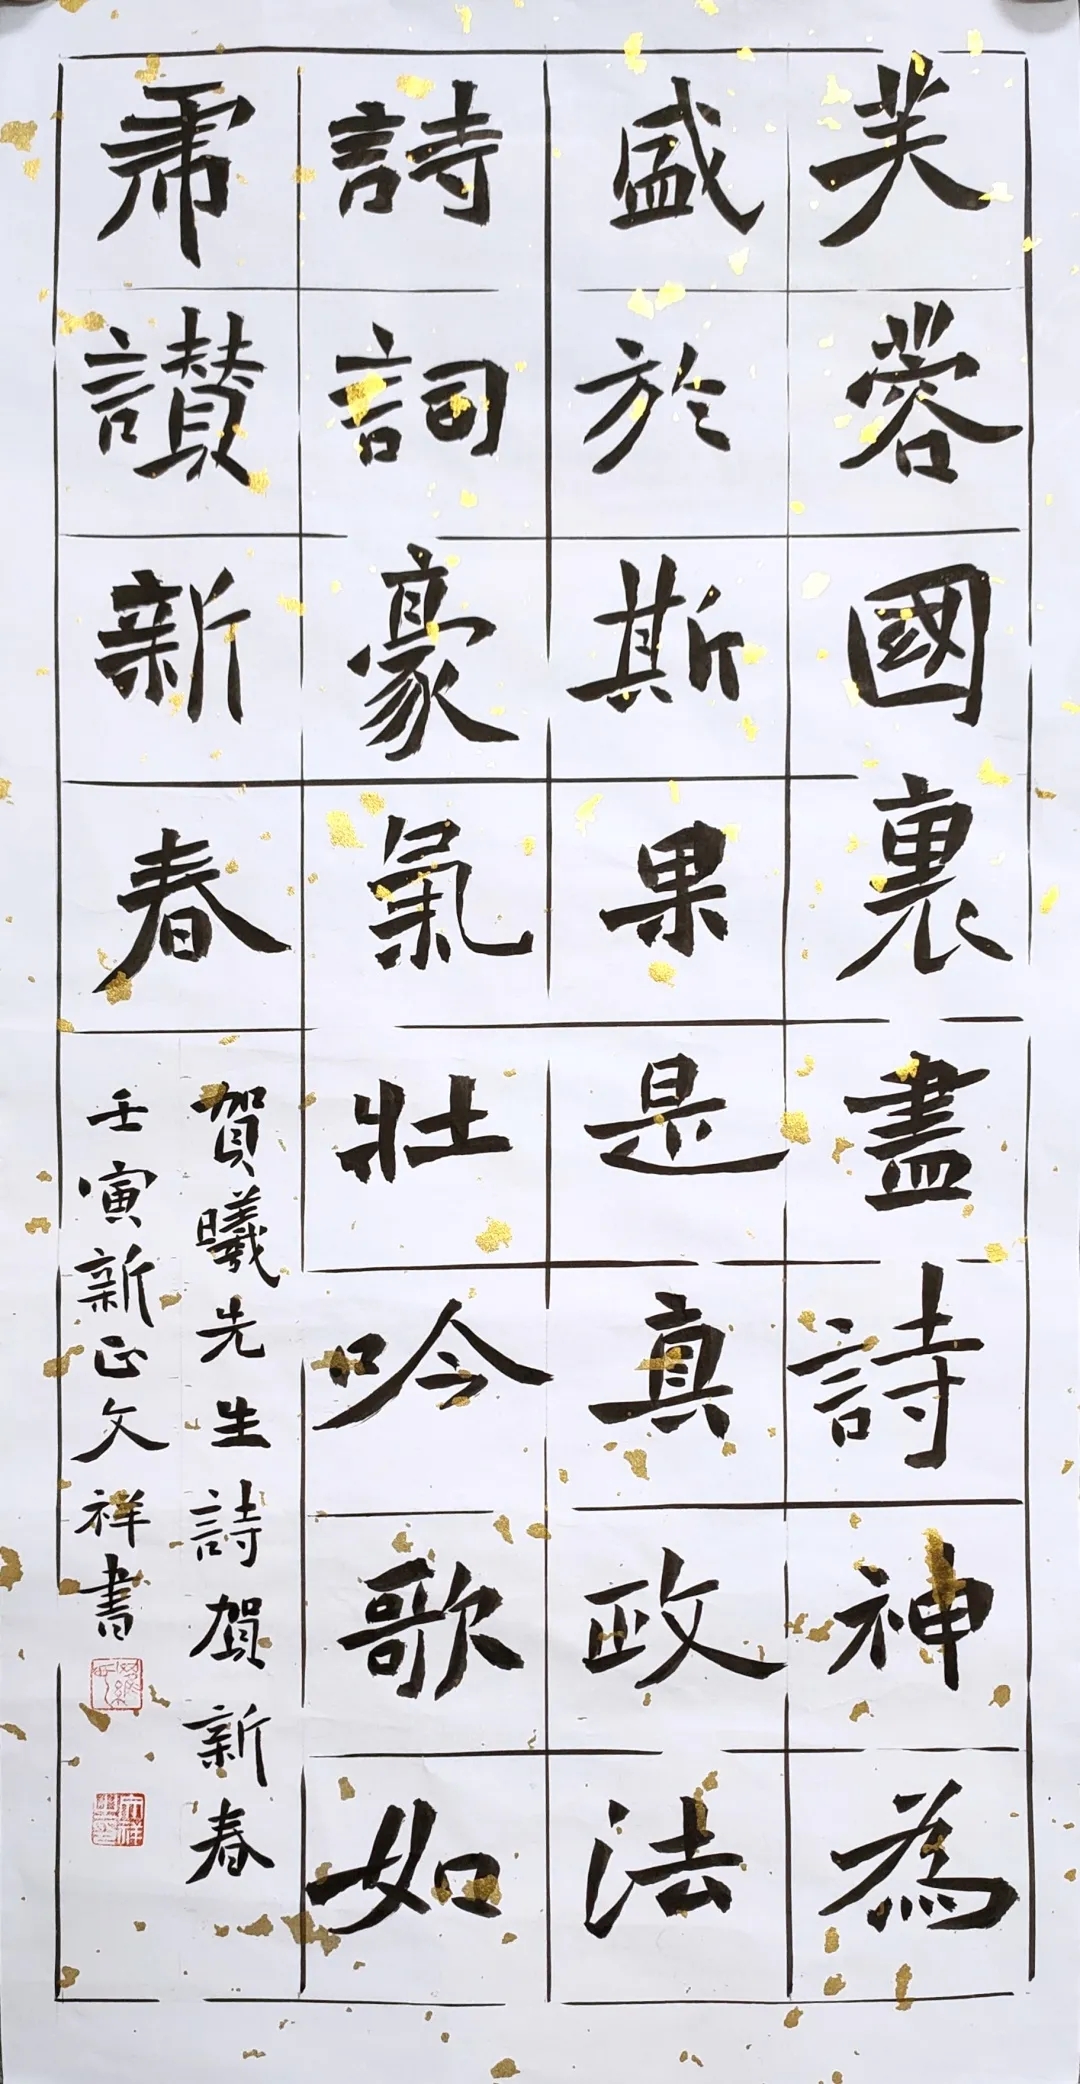 芙蓉國裏盡詩神為
盛於斯果是真政法
詩詞豪氣壯吟歌如
乕讚新春
賀曦先生詩賀新春
壬寅新正文祥書